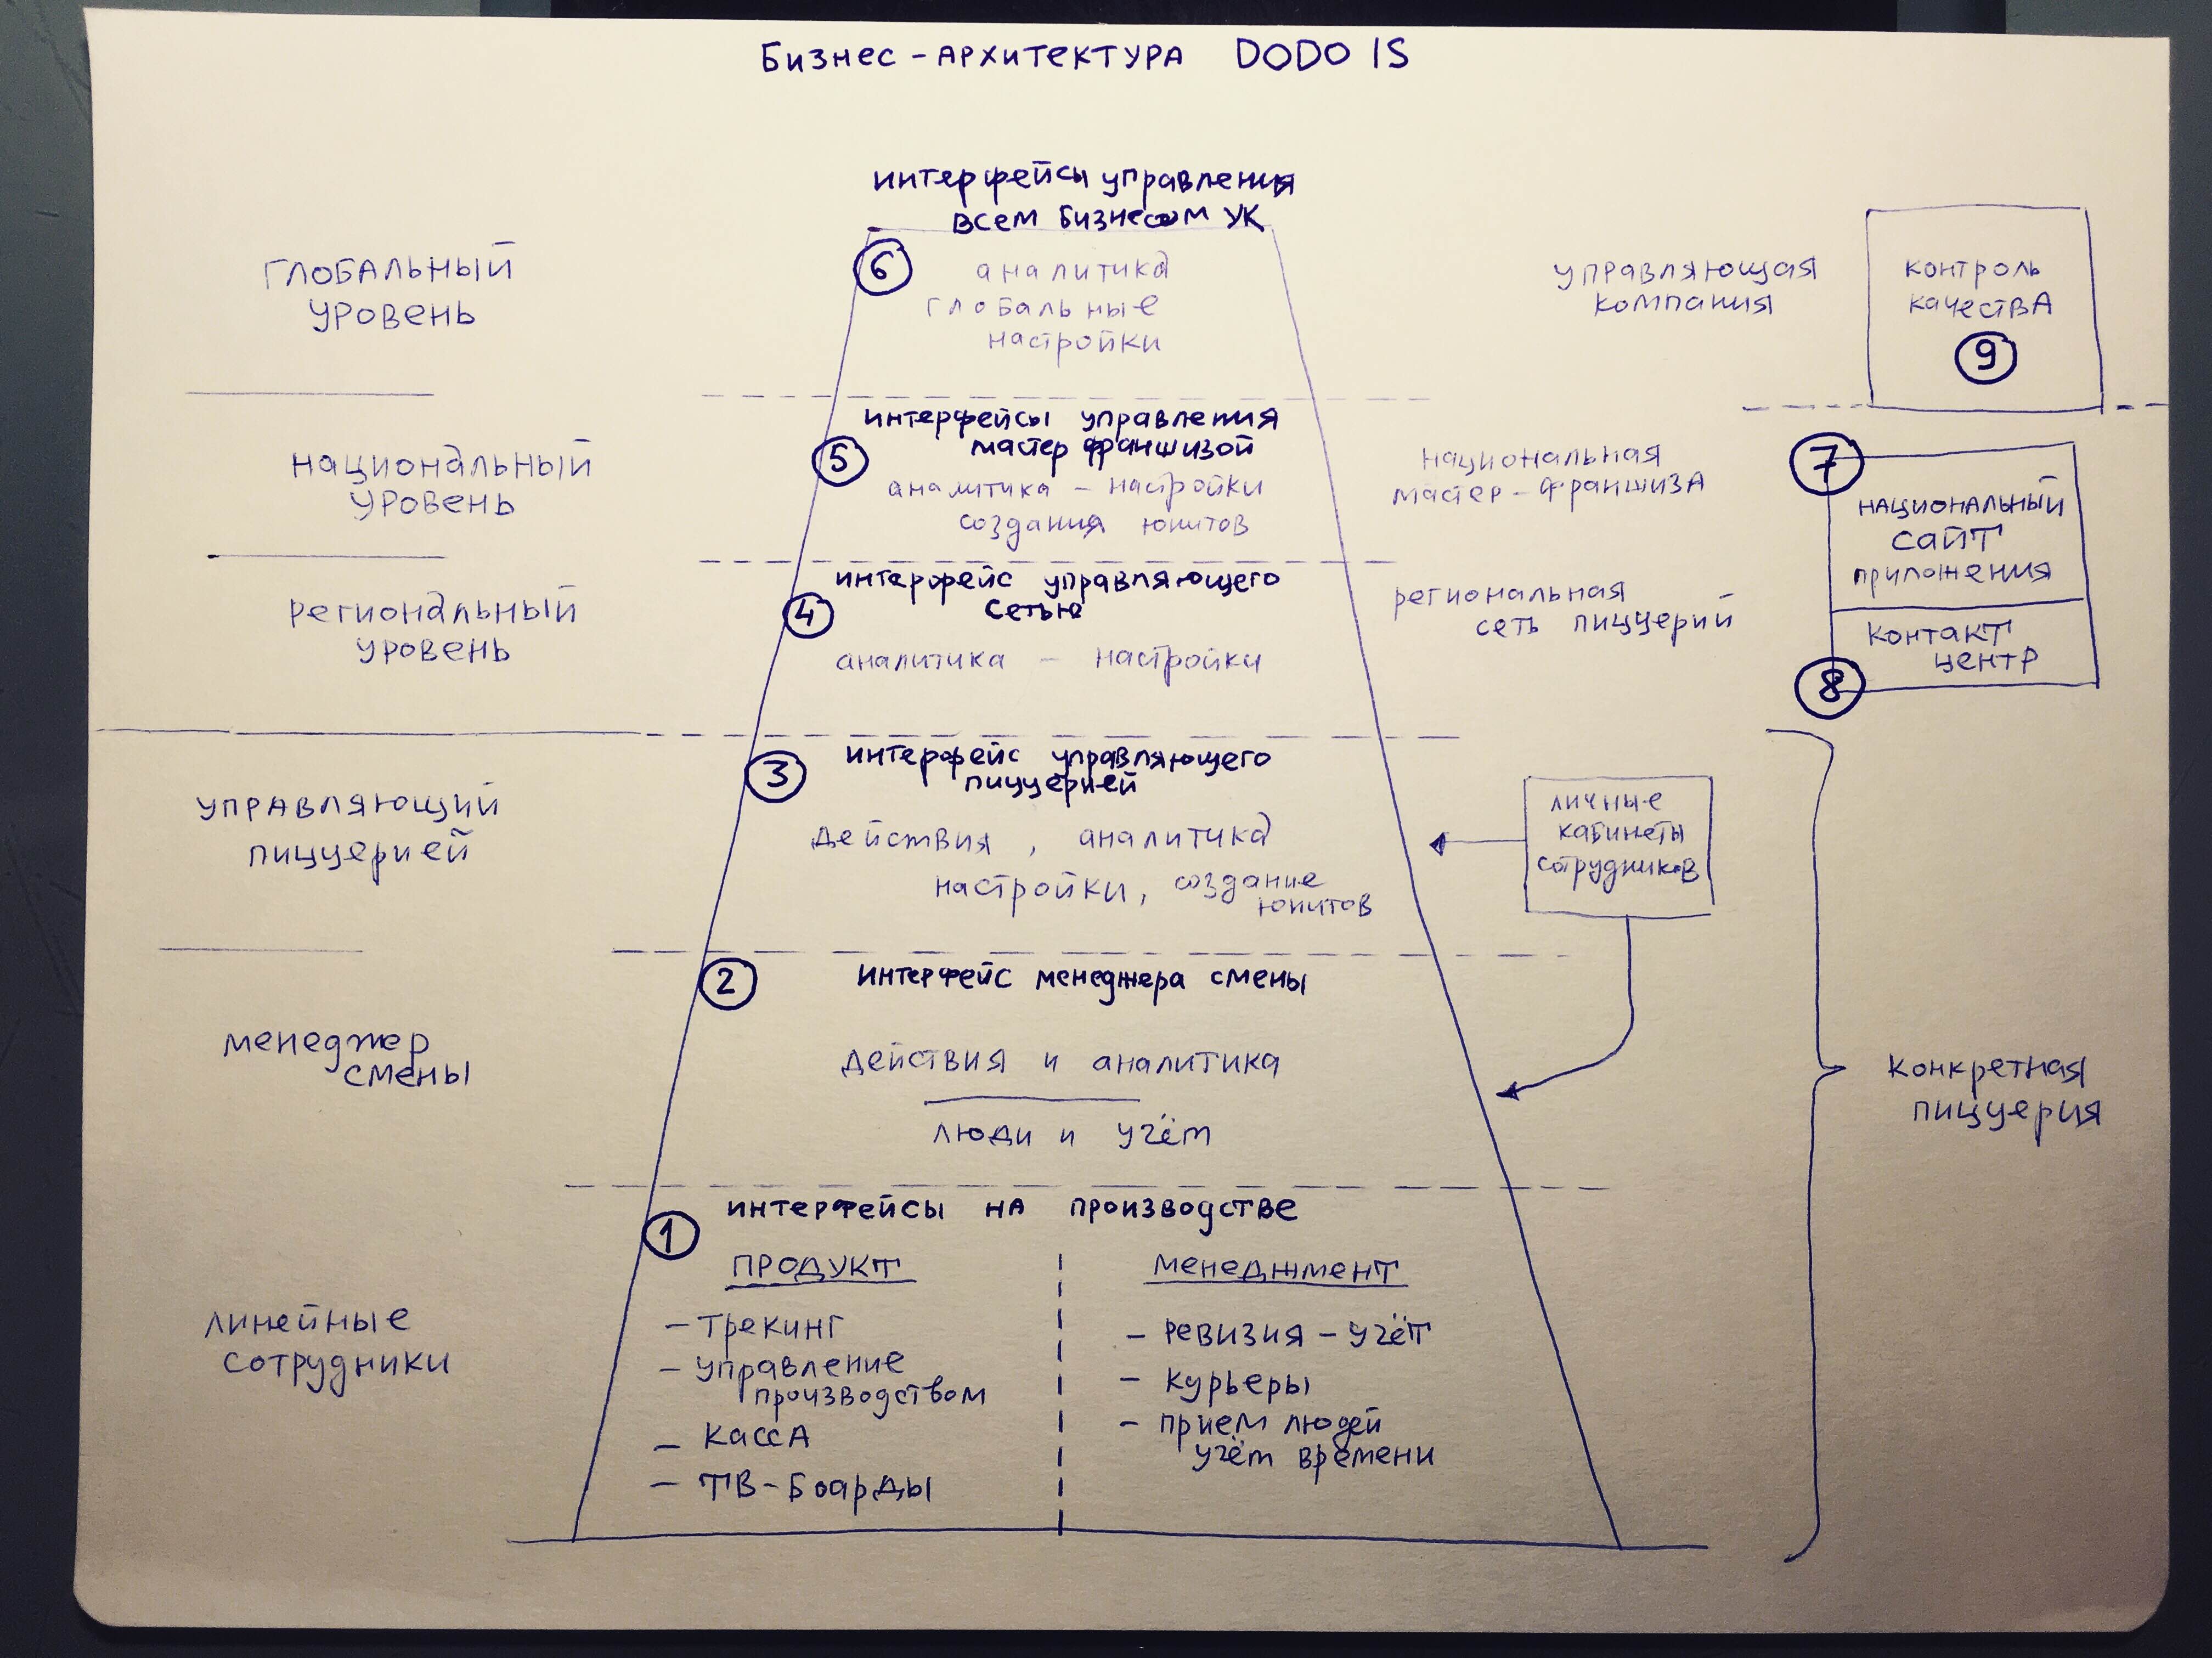 Бизнес-архитектура DODO IS
интерфейсы управления
всем бизнесом УК
глобальный
уровень
6
аналитика
глобальные
настройки
управляющая
компания
контроль
качества
9
национальный
уровень
интерфейсы управления
мастер франшизой
5
аналитика - настройки
создания юнитов
национальная
мастер-франшиза
7
национальный
сайт
приложения
региональный
уровень
интерфейс управляющего
сетью
4
аналитика - настройки
региональная
сеть пиццерий
контакт
центр
8
управляющий
пиццерией
3
интерфейс управляющего
пиццерией
действия, аналитика
настройки, создание
юнитов
личные
кабинеты
сотрудников
менеджер
смены
2
интерфейс менеджера смены
действия и аналитика
люди и учёт
конкретная
пиццерия
линейные
сотрудники
1
интерфейсы на производстве
продукт
- трекинг
- управление
производством
- касса
- ТВ-боарды
менеджмент
- ревизия - учёт
- курьеры
- прием людей
учём времени